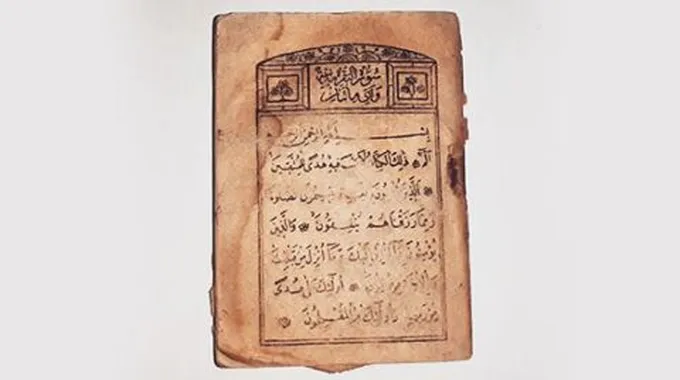 سورة البقرة
بسم الله الرحمن الرحيم
الم ذلك الكتاب لا ريب فيه هدى للمتقين
الذين يؤمنون بالغيب ويقيمون الصلوة
ومما رزقناهم ينفقون والذين
يؤمنون بما انزل اليك وما انزل من قبلك
وبالاخرة هم يوقنون اولئك على هدى
من ربهم واولئك هم المفلحون